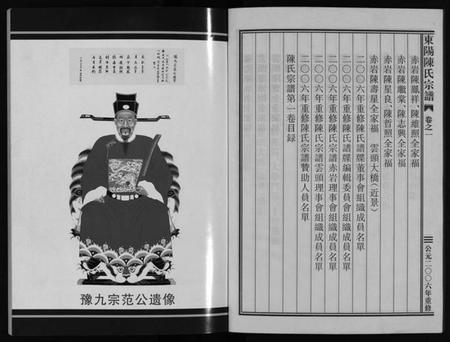 東陽陳氏宗譜 卷之一
赤岩陳鳳祥、陳維照全家福
赤岩陳繼棠、陳志興全家福
赤岩陳星良、陳哲照全家福
赤岩陳壽星全家福 雲頭大橋(近景)
二〇〇六年重修陳氏譜牒董事會組織成員名單
二〇〇六年重修陳氏譜牒編輯委員會組織成員名單
二〇〇六年重修陳氏宗譜赤岩理事會組織成員名單
二〇〇六年重修陳氏宗譜雲頭理事會組織成員名單
二〇〇六年重修陳氏宗譜贊助人員名單
陳氏宗譜第一卷目録
公元二〇〇六年重修
豫九宗范公遺像